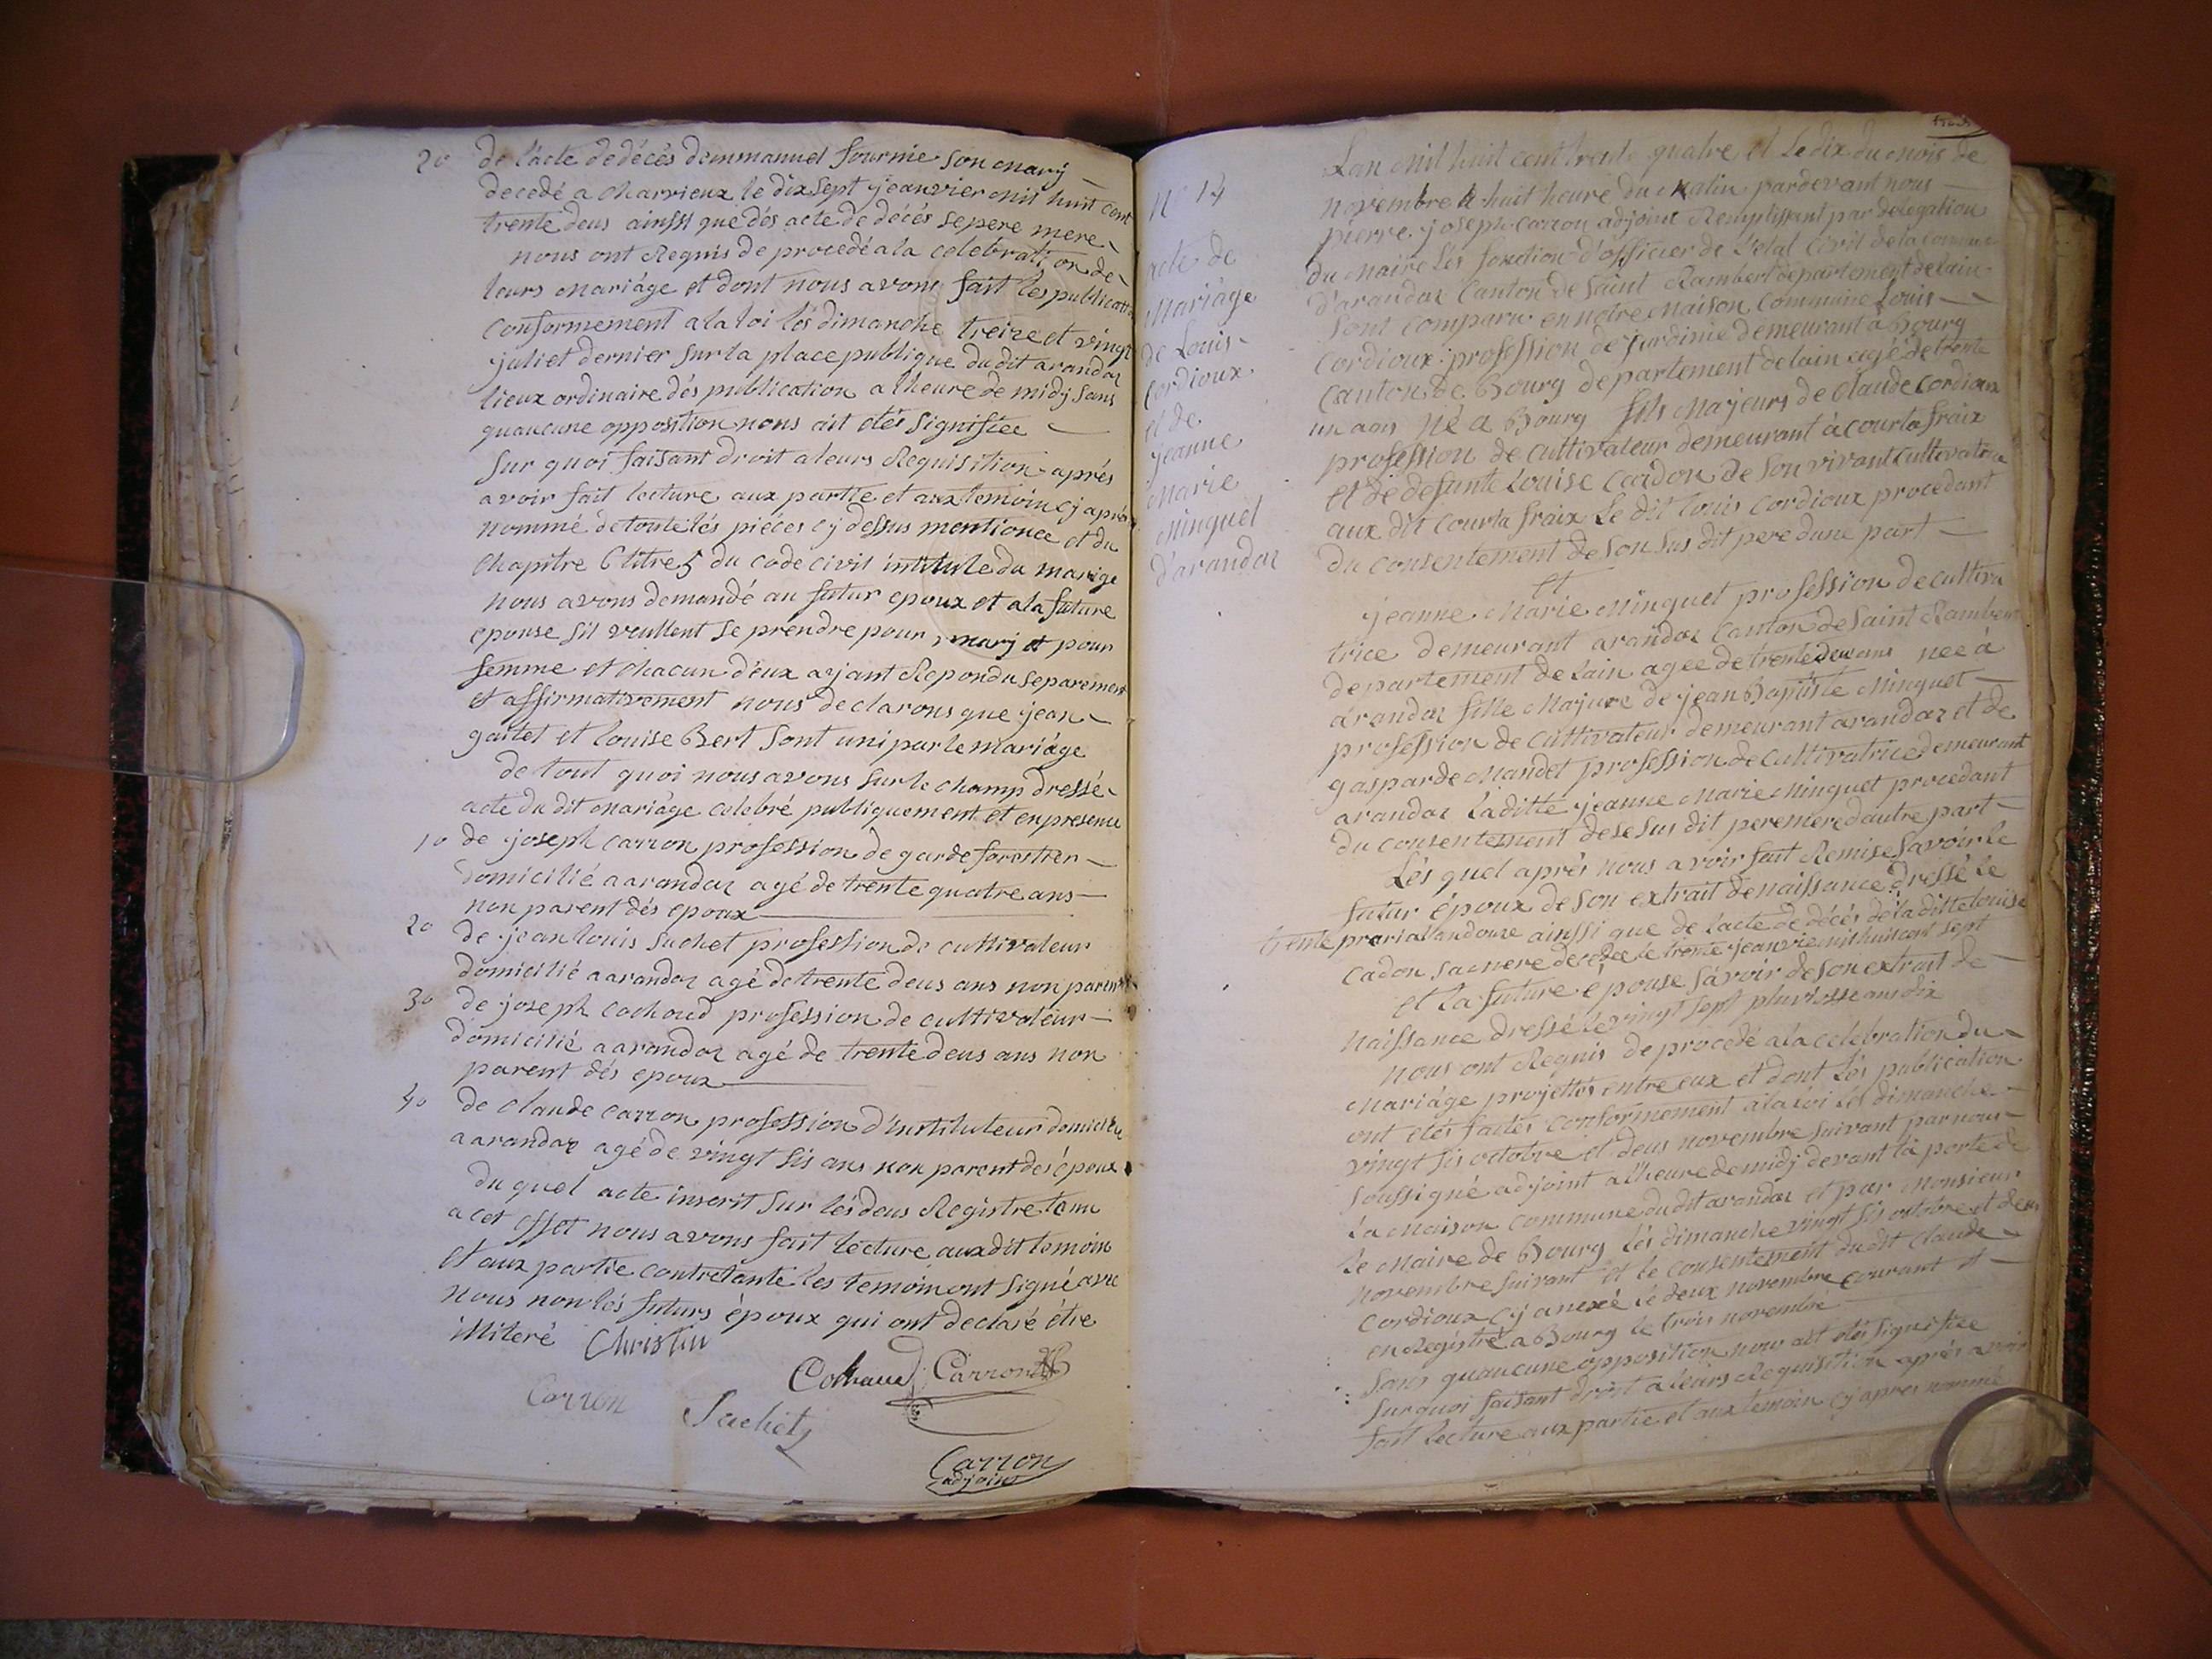 2o de l'acte de décés demmanuel fournie son mary
decedé a charvieux le dix sept jeanvier mil huit cent
trente deus ainssi que dés acte de décés se pere mere
nous ont Requis de procedé a la celebration de
leurs mariáge et dont nous avons fait lés publicat
conformement a la loi lés dimanche treize et vingt
juliet dernier sur la place publique du dit arandas
lieux ordinaire dés publication a lheure de midj sans
quaucune opposition nous ait etés signifiée
sur quoi faisant droit a leurs Requisition aprés
avoir fait lecture aux partie et aux temoin cj aprés
nommé de toute lés piéces cj dessus mentionee et du
chapitre 6 titre 5 du code civil intitule du mariage
nous avons demandé au futur epoux et a la future
epouse sil veullent se prendre pour marj et pour
femme et chacun d'eux ayant Repondu separement
et affirmativement nous declarons que jean
gaitet et louise Bert sont uni par le mariáge
de tout quoi nous avons sur le champ dressé
acte du dit mariáge célébré publiquement et en presence
1o de joseph carron profession de garde forestier
domicilié a arandas agé de trente quatre ans
non parent dés epoux
2o de jean louis suchet profession de cultivateur
domicilié a arandas agé de trente deus ans non parent
3o de joseph cochaud profession de cultivateur
domicilié a arandas agé de trente deus ans non
parent dés epoux
4o de claude carron profession d'instituteur domicilié
a arandas agé de vingt sis ans non parent des époux
du quel acte inscrit sur lés deus Registre tenu
a cet effet nous avons fait lecture aux dit temoin
et aux partie contretante les temoin ont signé avec
nous non lés futurs époux qui ont declaré étre
illiteré Christin
Cochaud Carron
Carron Suchet
Carron
adjoint
No 14
acte de
Mariáge
de Louis
Cordioux
et de
jeanne
Marie
Minguet
d'arandas
Lan mil huit cent trente quatre et le dix du mois de
novembre a huit heure du matin pardevant nous
pierre joseph carron adjoint Remplissant par delegation
du maire lés fonction d'officier de l'etat civil de la commune
d'arandas canton de saint Rambert departement de lain
sont comparu en notre maison commune Louis
Cordioux profession de jardinie demeurant a Bourg
canton de Bourg departement de lain agé de trente
un ans né a Bourg fils majeurs de claude cordioux
profession de cultivateur demeurant à courtafraix
et de defunte Louise Cardon de son vivant cultivatrice
aux dit courtafraix le dit louis cordioux procedant
du consentement de son sus dit pere dune part
et
jeanne Marie Minguet profession de cultiva
trice demeurant arandas canton de saint Rambert
departement de lain agee de trente deus ans nee á
arandas fille majure de jean Baptiste Minguet
profession de cultivateur demeurant arandas et de
gasparde Mandet profession de cultivatrice demeurant
arandas laditte jeanne Marie Minguet procedant
du consentement de se sus dit pere mere dautre part
Lés quel aprés nous avoir fait Remise savoir le
futur époux de son extrait de naissance dressé le
trente prerial an douze ainssi que de lacte de décés de la ditte louise
cadon sa mere decedee le trente jeanvie mil huit cent sept
et la future épouse sávoir de son extrait de
naissance dressé le vingt sept pluviosse ans dix
nous ont Requis de procedé a la celebration du
mariáge projettés entre eux et dont lés publication
ont etés faités conformement a la loi lés dimanche
vingt sis octobre et deus novembre suivant par nous
soussigné adjoint a lheure de midj devant la porte de
la maison commune du dit arandas et par Monsieur
le Maire de Bourg lés dimanche vingt sis octobre et deus
novembre suivant et le consentement du dit claude
cordioux cj anexé le deux novembre courant et
enRegistré a Bourg le trois novembre
sans quaucune opposition nous ait etés signifiée
sur quoi faisant droit a leurs Requisition aprés avoir
fait lecture aux partie et aux temoin cj apres nommé